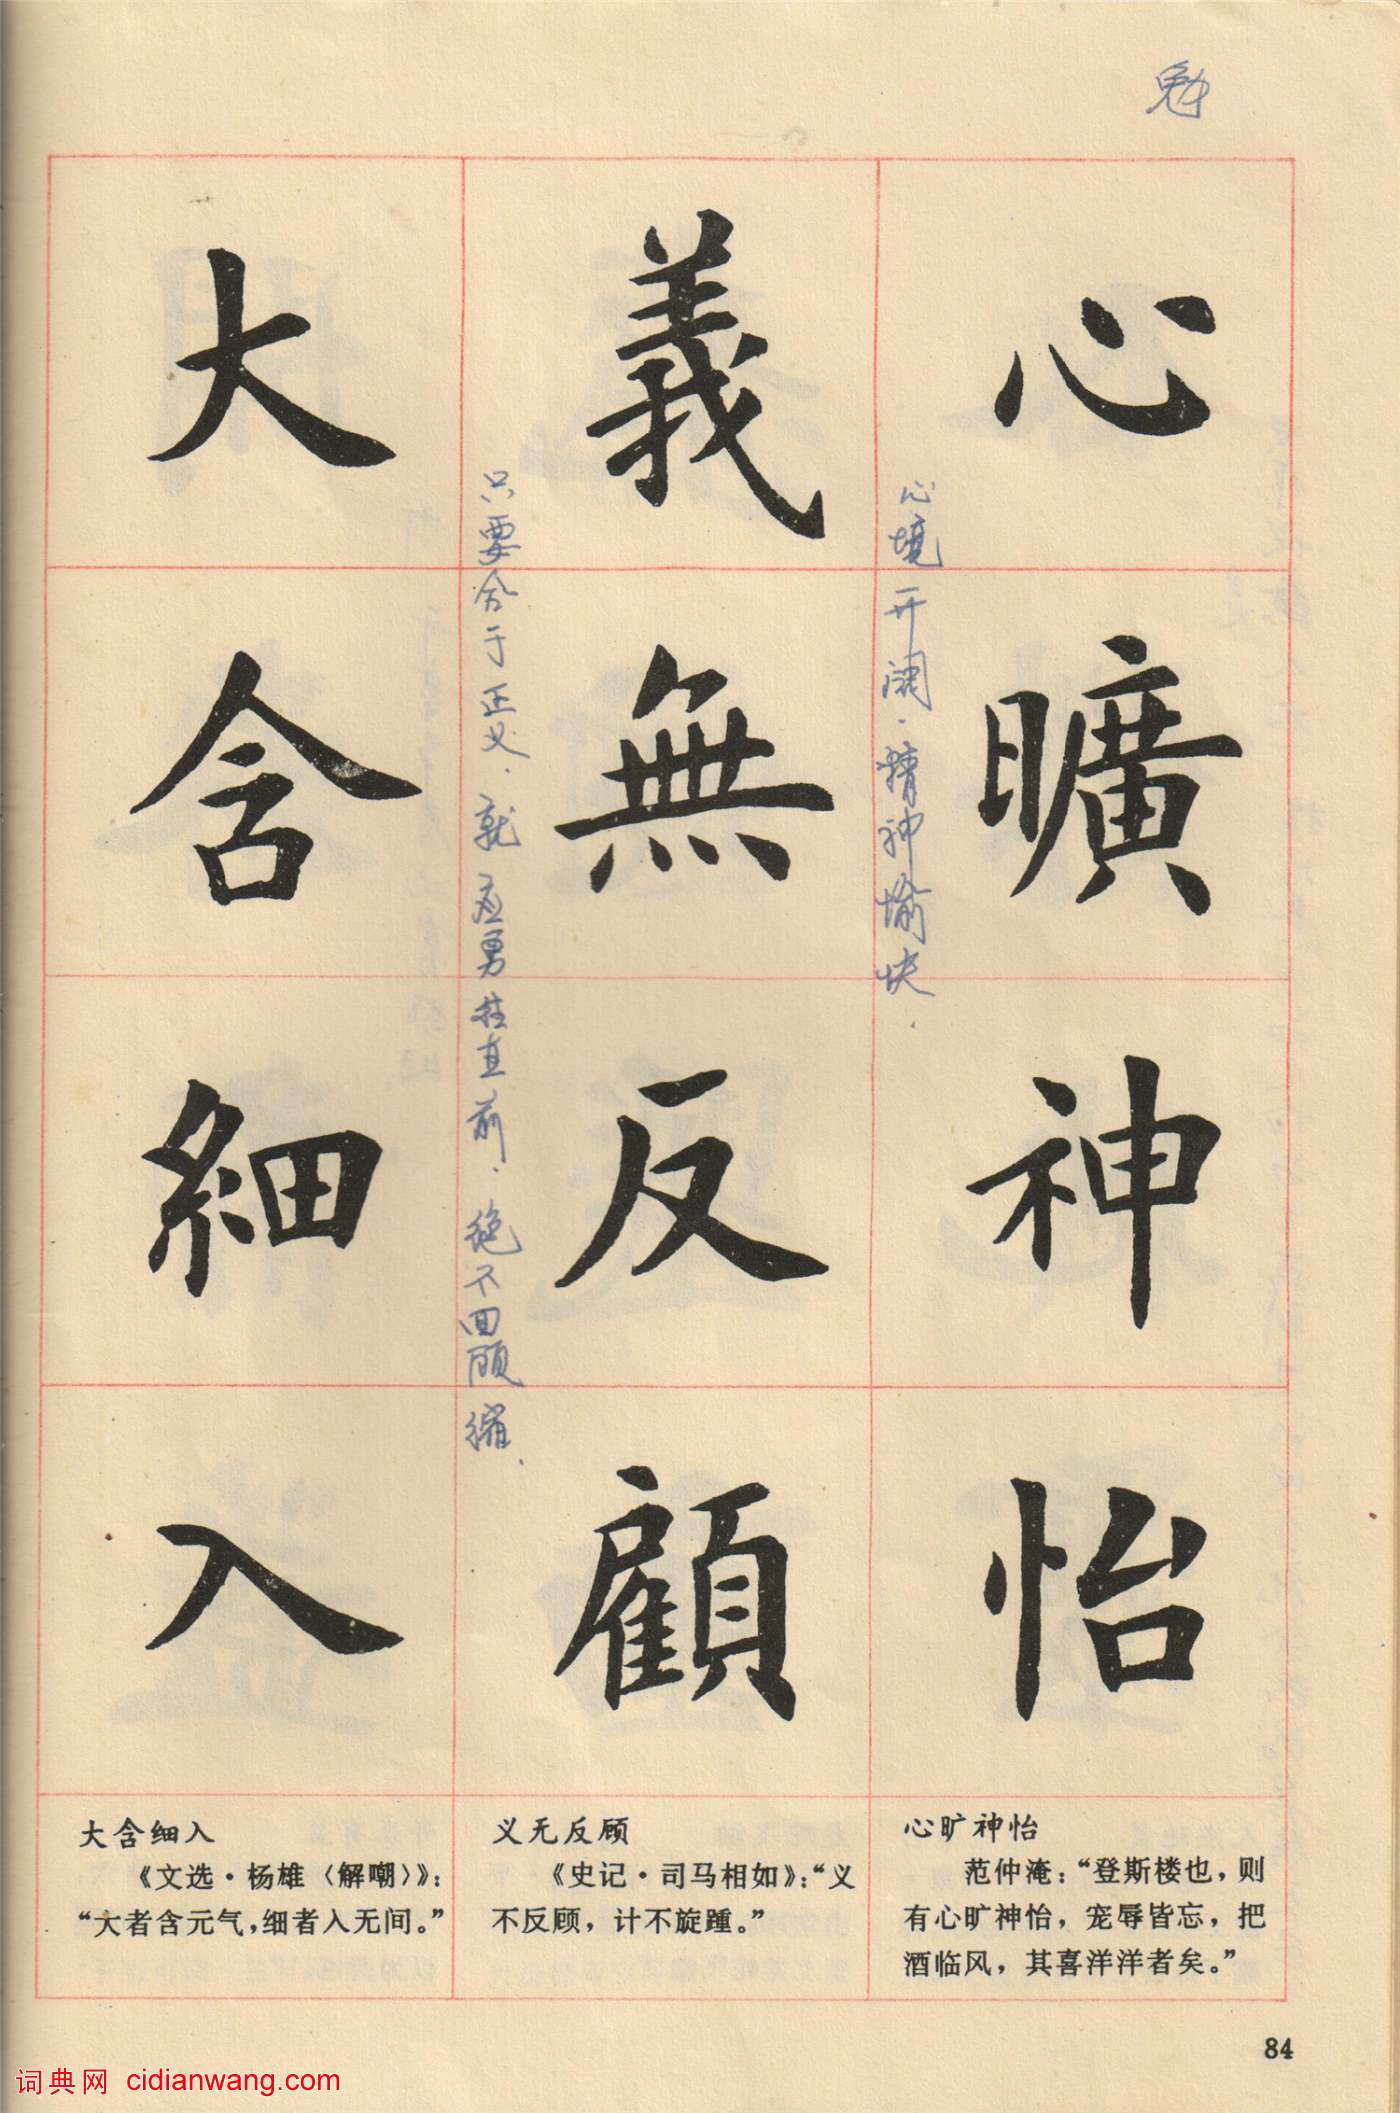 勉
心曠神怡
心境开阔.精神愉快.
義無反顧
只要合于正义.就应勇往直前.绝不回顾缩.
大含細入
心旷神怡
范仲淹：“登斯楼也，则
有心旷神怡，宠辱皆忘，把
酒临风，其喜洋洋者矣。”
义无反顾
《史记·司马相如》：“义
不反顾，计不旋踵。”
大含细入
《文选·杨雄〈解嘲〉》：
“大者含元气，细者入无间。”
84
词典网 cidianwang.com